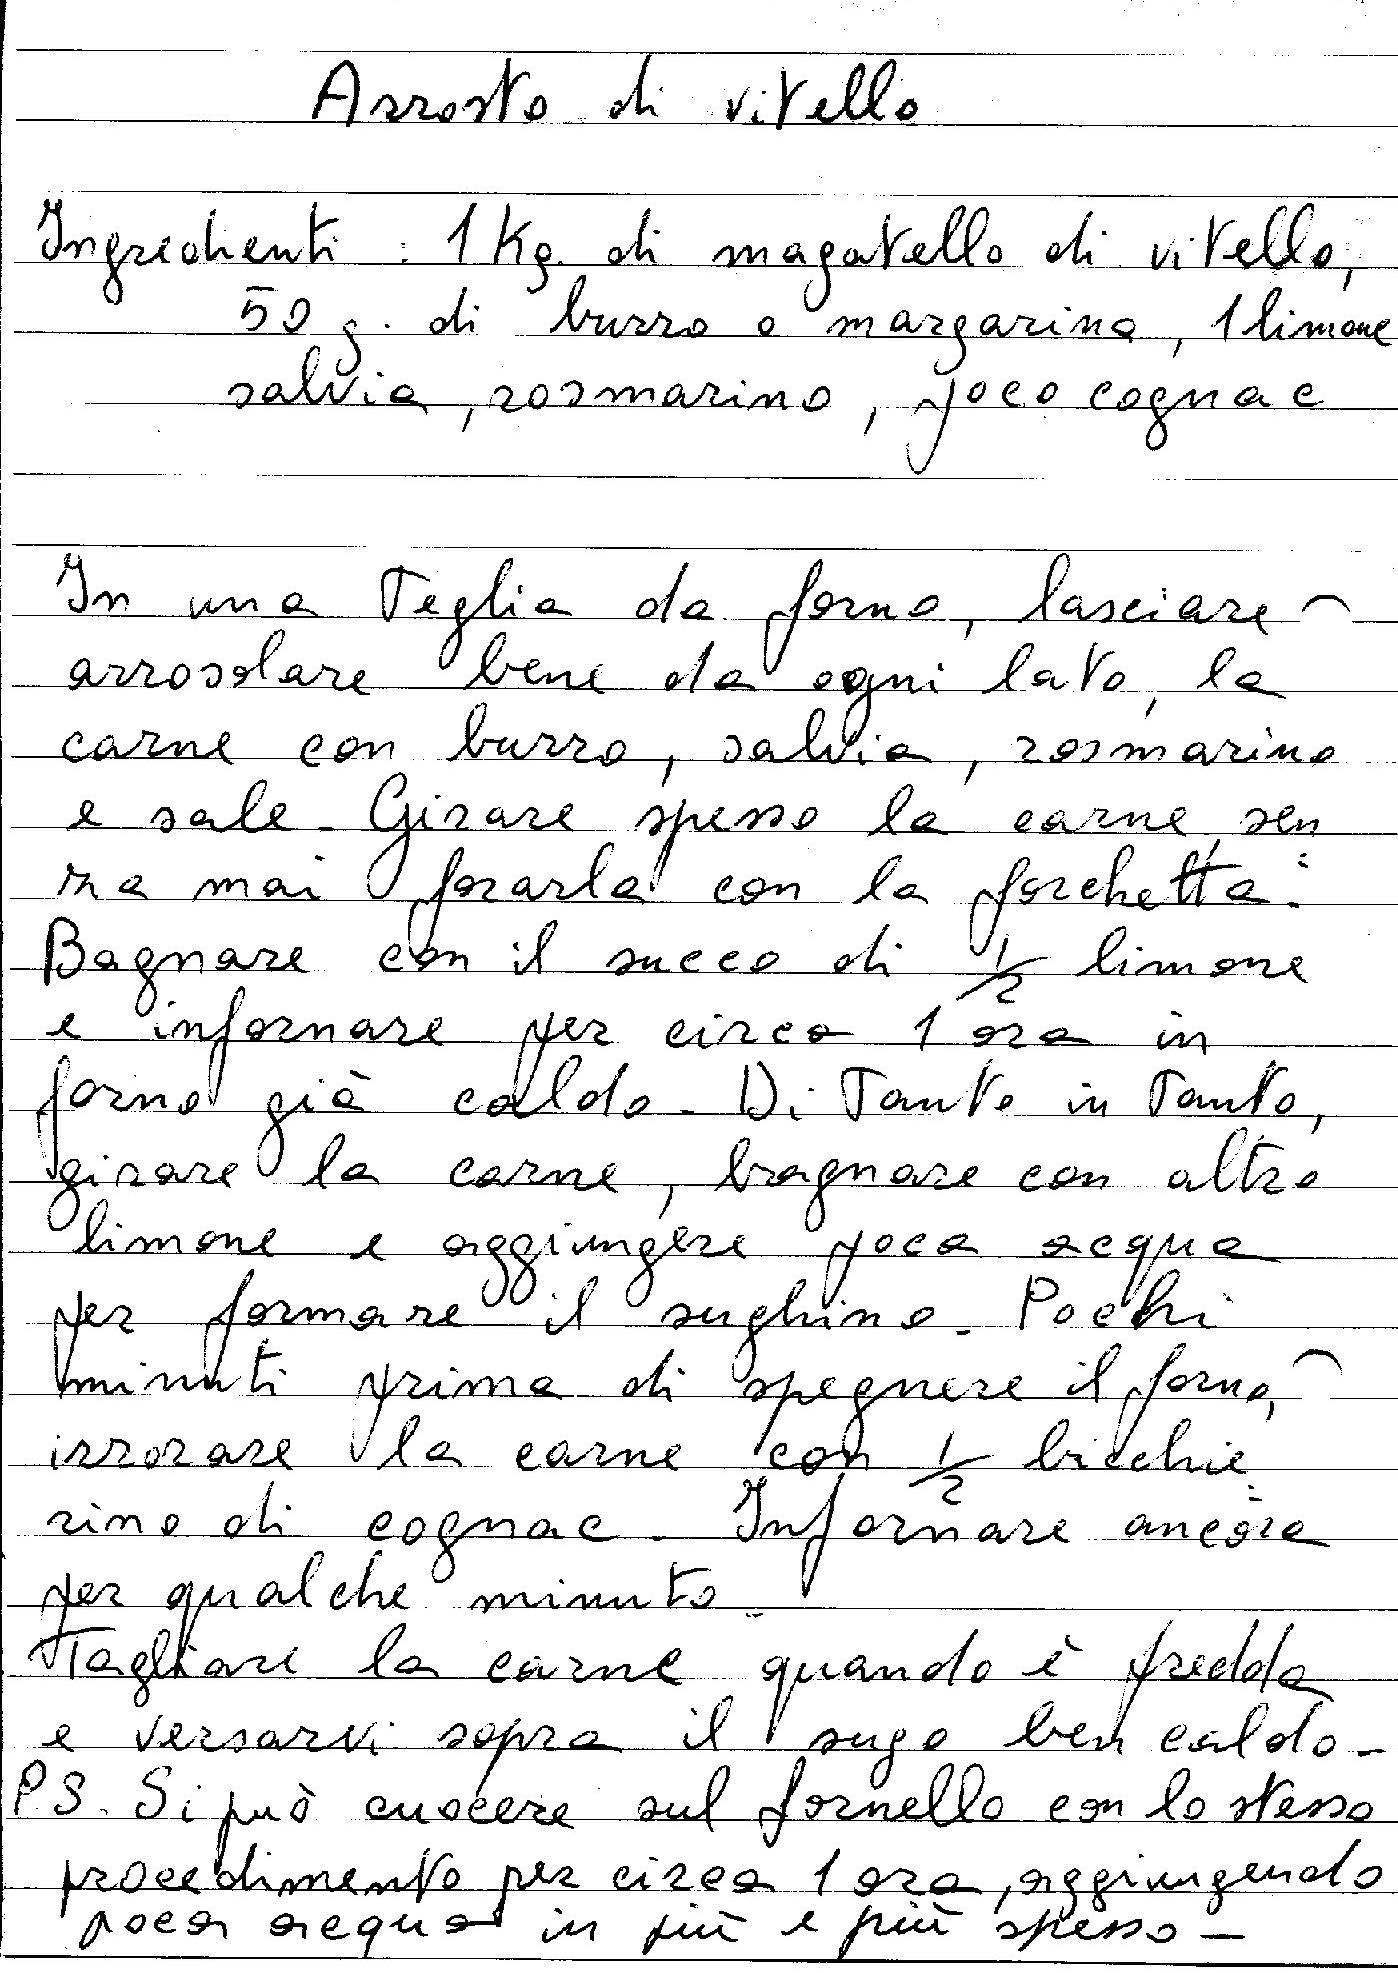 Arrosto di vitello
Ingredienti : 1 Kg. di magatello di vitello,
50 g. di burro o margarina, 1 limone
salvia, rosmarino, poco cognac
In una Teglia da forno, lasciare
arrosolare bene da ogni lato, la
carne con burro, salvia, rosmarino
e sale. Girare spesso la carne, sen
za mai forarla con la forchetta.
Bagnare con il succo di 1/2 limone
e infornare per circa 1 ora in
forno già caldo. Di Tanto in Tanto,
girare la carne, bagnare con altro
limone e aggiungere poca acqua
per formare il sughino. Pochi
minuti prima di spegnere il forno,
irrorare la carne con 1/2 bicchie
rino di cognac. Infornare ancora
per qualche minuto.
Tagliare la carne quando è fredda
e versarvi sopra il sugo ben caldo-
PS. Si può cuocere sul fornello con lo stesso
procedimento per circa 1 ora, aggiungendo
poca acqua in più e più spesso-